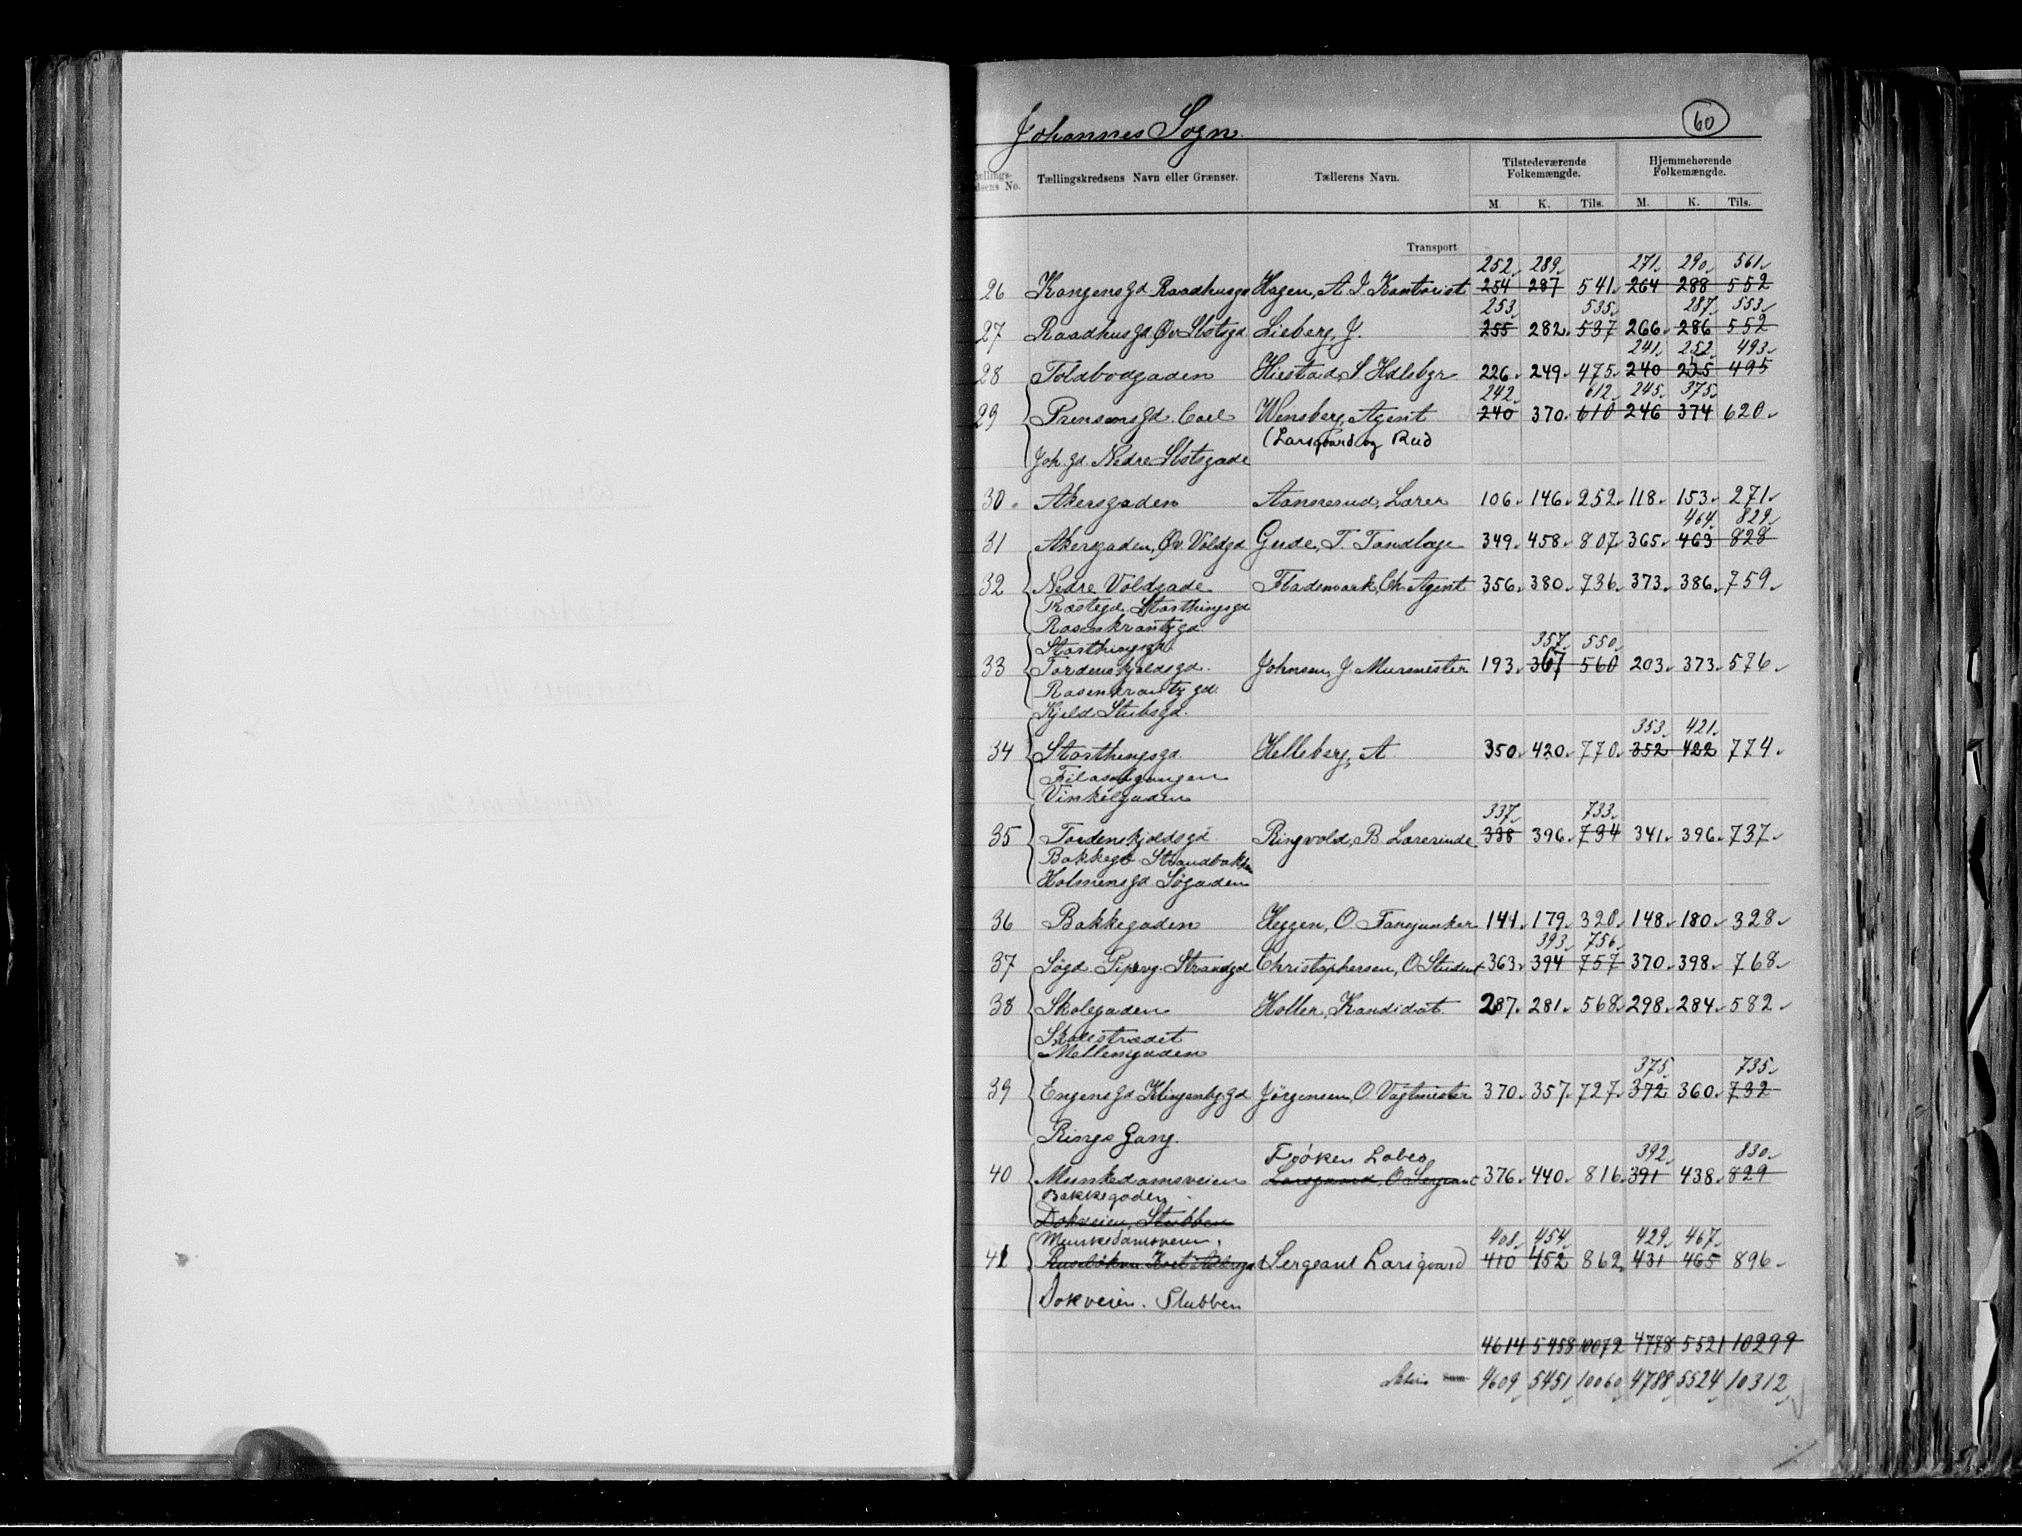 Johannes Sogn.
60
Tællings-kredsens No. Tællingskredsens Navn eller Grænser. Tællerens Navn. Tilstedeværende Folkemængde. Hjemmehørende Folkemængde.
M. K. Tils. M. K. Tils.
Transport
252 289 271 290 561
26 Kongensgd Raadhusgd Hagen, A I Kontorist 254 287 541 264 288 552
253 535 287 553
27 Raadhusgd Øv Slotsgd Lieberg, J. 255 282 537 266 286 552
241 252 493
28 Toldbodgaden Hiestad, S Hdlsbgr 226 249 475 240 255 495
242 612 245 375
29 Prinsensgd. Carl Wensberg, Agent 240 370 610 246 374 620
(Larsgaard og Rud
Joh. gd. Nedre Slotsgade
30 Akersgaden Aannerud, Lærer 106 146 252 118 153 271
464 829
31 Akersgaden, Øv Voldgd Gude, T. Tandlæge 349 458 807 365 463 828
32 Nedre Voldgade Flademoark, Chr Agent 356 380 736 373 386 759
Præstegd. Storthingsgd
Rosenkrantzgd.
Storthingsgd. 357 550
33 Tordenskjoldsgd. Johnsen, J Murmester 193 367 560 203 373 576
Rosenkrantzgd.
Kjeld Stubsgd.
353 421
34 Storthingsgd. Helleberg, A. 350 420 770 352 422 774
Filosofgangen
Vinkelgaden
337 733
35 Tordenskjoldsgd. Ringvold, B Lærerinde 338 396 734 341 396 737
Bakkegd Strandbakken
Holmensgd Søgaden
36 Bakkegaden Heggen, O Fanejunker 141 179 320 148 180 328
393 756
37 Søgd. Piperv. Strandgd Christophersen, O Student 363 394 757 370 398 768
38 Skolegaden Holler, Kandidat 287 281 568 298 284 582
Skolestrædet
Mellemgaden
375 735
39 Engensgd Klingenbg.gd Jørgensen, O Vagtmester 370 357 727 372 360 732
Rings Gang.
Frøken Lobes 392 830
40 Munkedamsveien Larsgaard, O Sergeant 376 440 816 391 438 829
Bakkegaden
Dokveien, Stubben
Munkedamsveien 408 454 429 467
41 Sergeant Larsgaard 410 452 862 431 465 896
Dokveien. Stubben
4614 5458 10072 4778 5521 10299
Lateris 4609 5451 10060 4788 5524 10312